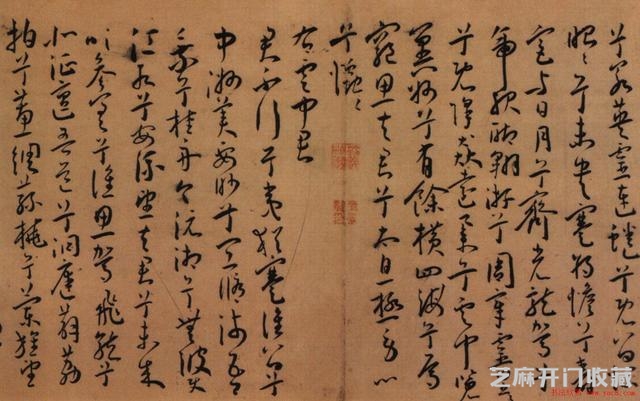 兮若英靈連蜷兮既留爛
昭昭兮未央蹇將憺兮壽
宮與日月兮齊光龍駕兮
帝服聊翱游兮周章靈皇
兮既降猋遠舉兮雲中覽
冀州兮有餘橫四海兮焉
窮思夫君兮太息極勞心
兮忡〻
右雲中君
君不行兮夷猶蹇誰留兮
中洲美要眇兮宜脩沛吾
乘兮桂舟令沅湘兮無波使
江水兮安流望夫君兮未來
吹參差兮誰思駕飛龍兮
北征邅吾道兮洞庭薜荔
拍兮蕙綢蓀橈兮蘭旌望
芝麻开门收藏